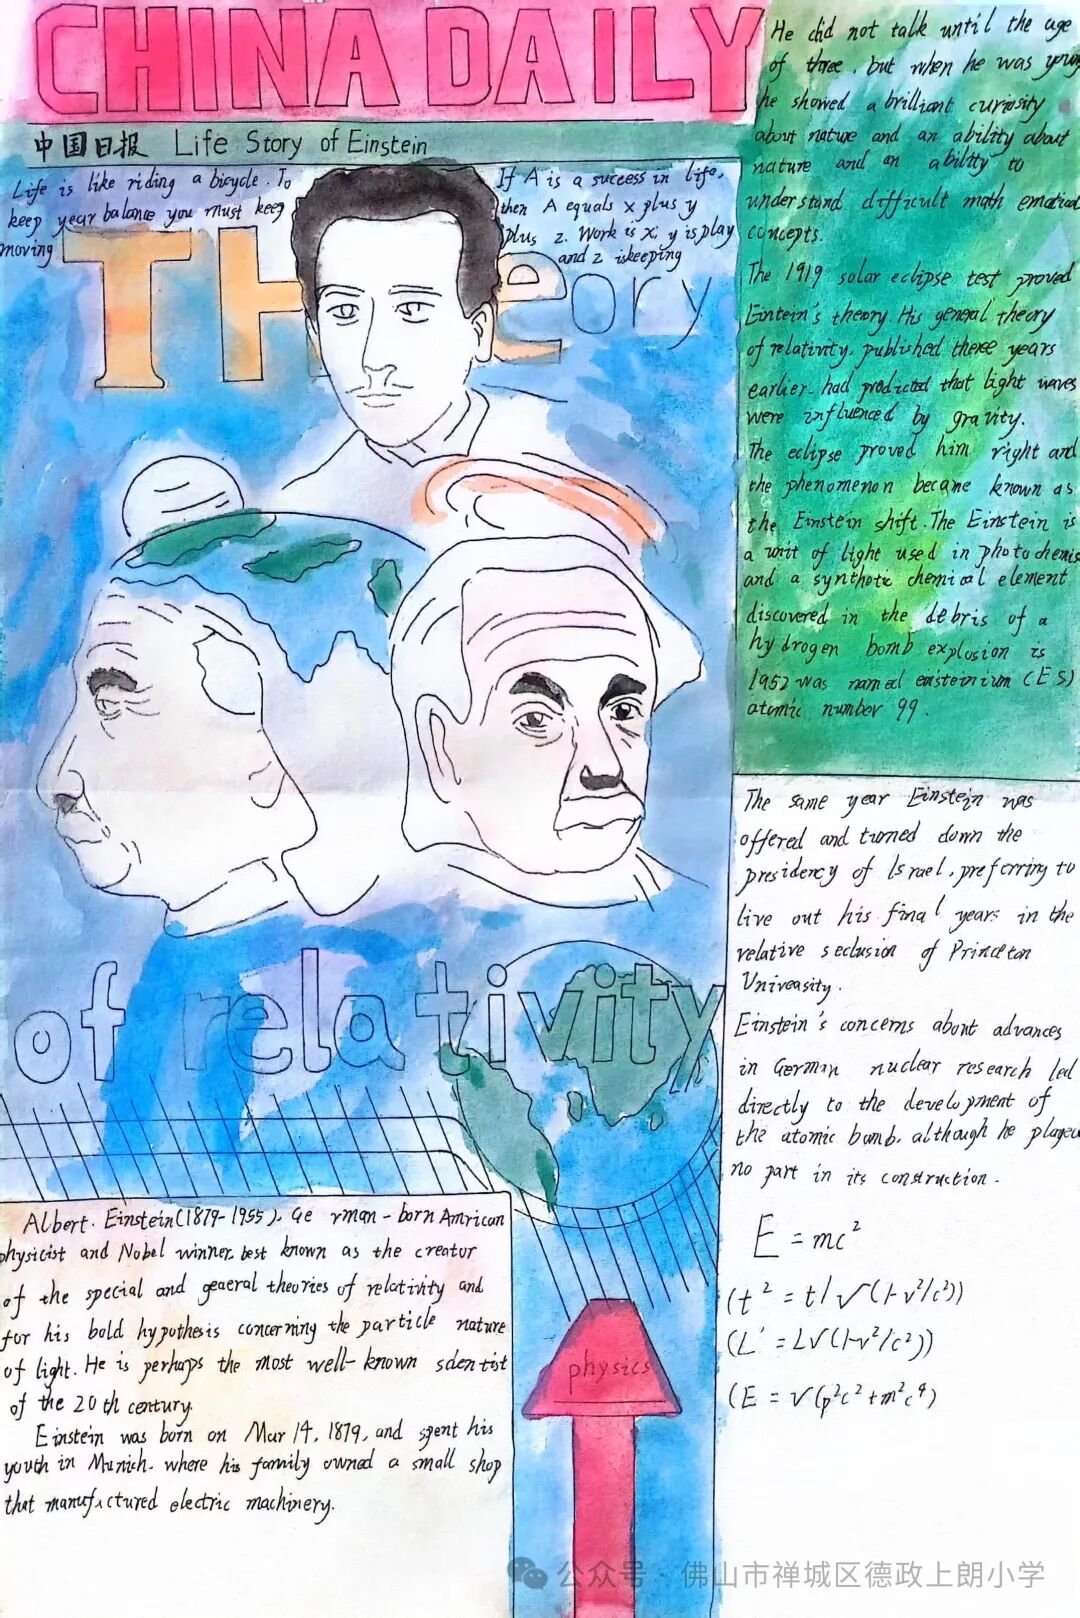 CHINA DAILY
中国日报 Life Story of Einstein
Life is like riding a bicycle. To
keep year balance you must keep
moving
If A is a success in life,
then A equals x plus y
plus z. Work is x; y is play
and z iskeeping
THeory
of relativity
Albert. Einstein(1879-1955), Ge rman-born Amrican
physicist and Nobel winner, best known as the creator
of the special and general theories of relativity and
for his bold hypothesis concerning the particle nature
of light. He is perhaps the most well-known scientist
of the 20th century
Einstein was born on Mar 14, 1879, and spent his
youth in Munich. where his family owned a small shop
that manufactured electric machinery.
physics
He did not talk until the age
of three, but when he was young
he showed a brilliant curiosity
about nature and an ability about
nature and an ability to
understand difficult math ematical
concepts.
The 1919 solar eclipse test proved
Eintein's theory. His general theory
of relativity, published there years
earlier, had predicted that light waves
were influenced by gravity.
The eclipse proved him right and
the phenomenon became known as
the Einstein shift. The Einstein is
a unit of light used in photochemis
and a synthetic chemical element
discovered in the debris of a
hydrogen bomb explosion is
1952 was named einsteinium (ES)
atomic number 99.
The same year Einstein was
offered and turned down the
presidency of Israel, preferring to
live out his final years in the
relative seclusion of Princeton
University.
Einstein's concerns about advances
in German nuclear research led
directly to the development of
the atomic bomb, although he played
no part in its construction.
E = mc²
(t² = t/√(1-v²/c²))
(L' = L√(1-v²/c²))
(E = √(p²c²+m²c⁴)
公众号 · 佛山市禅城区德政上朗小学